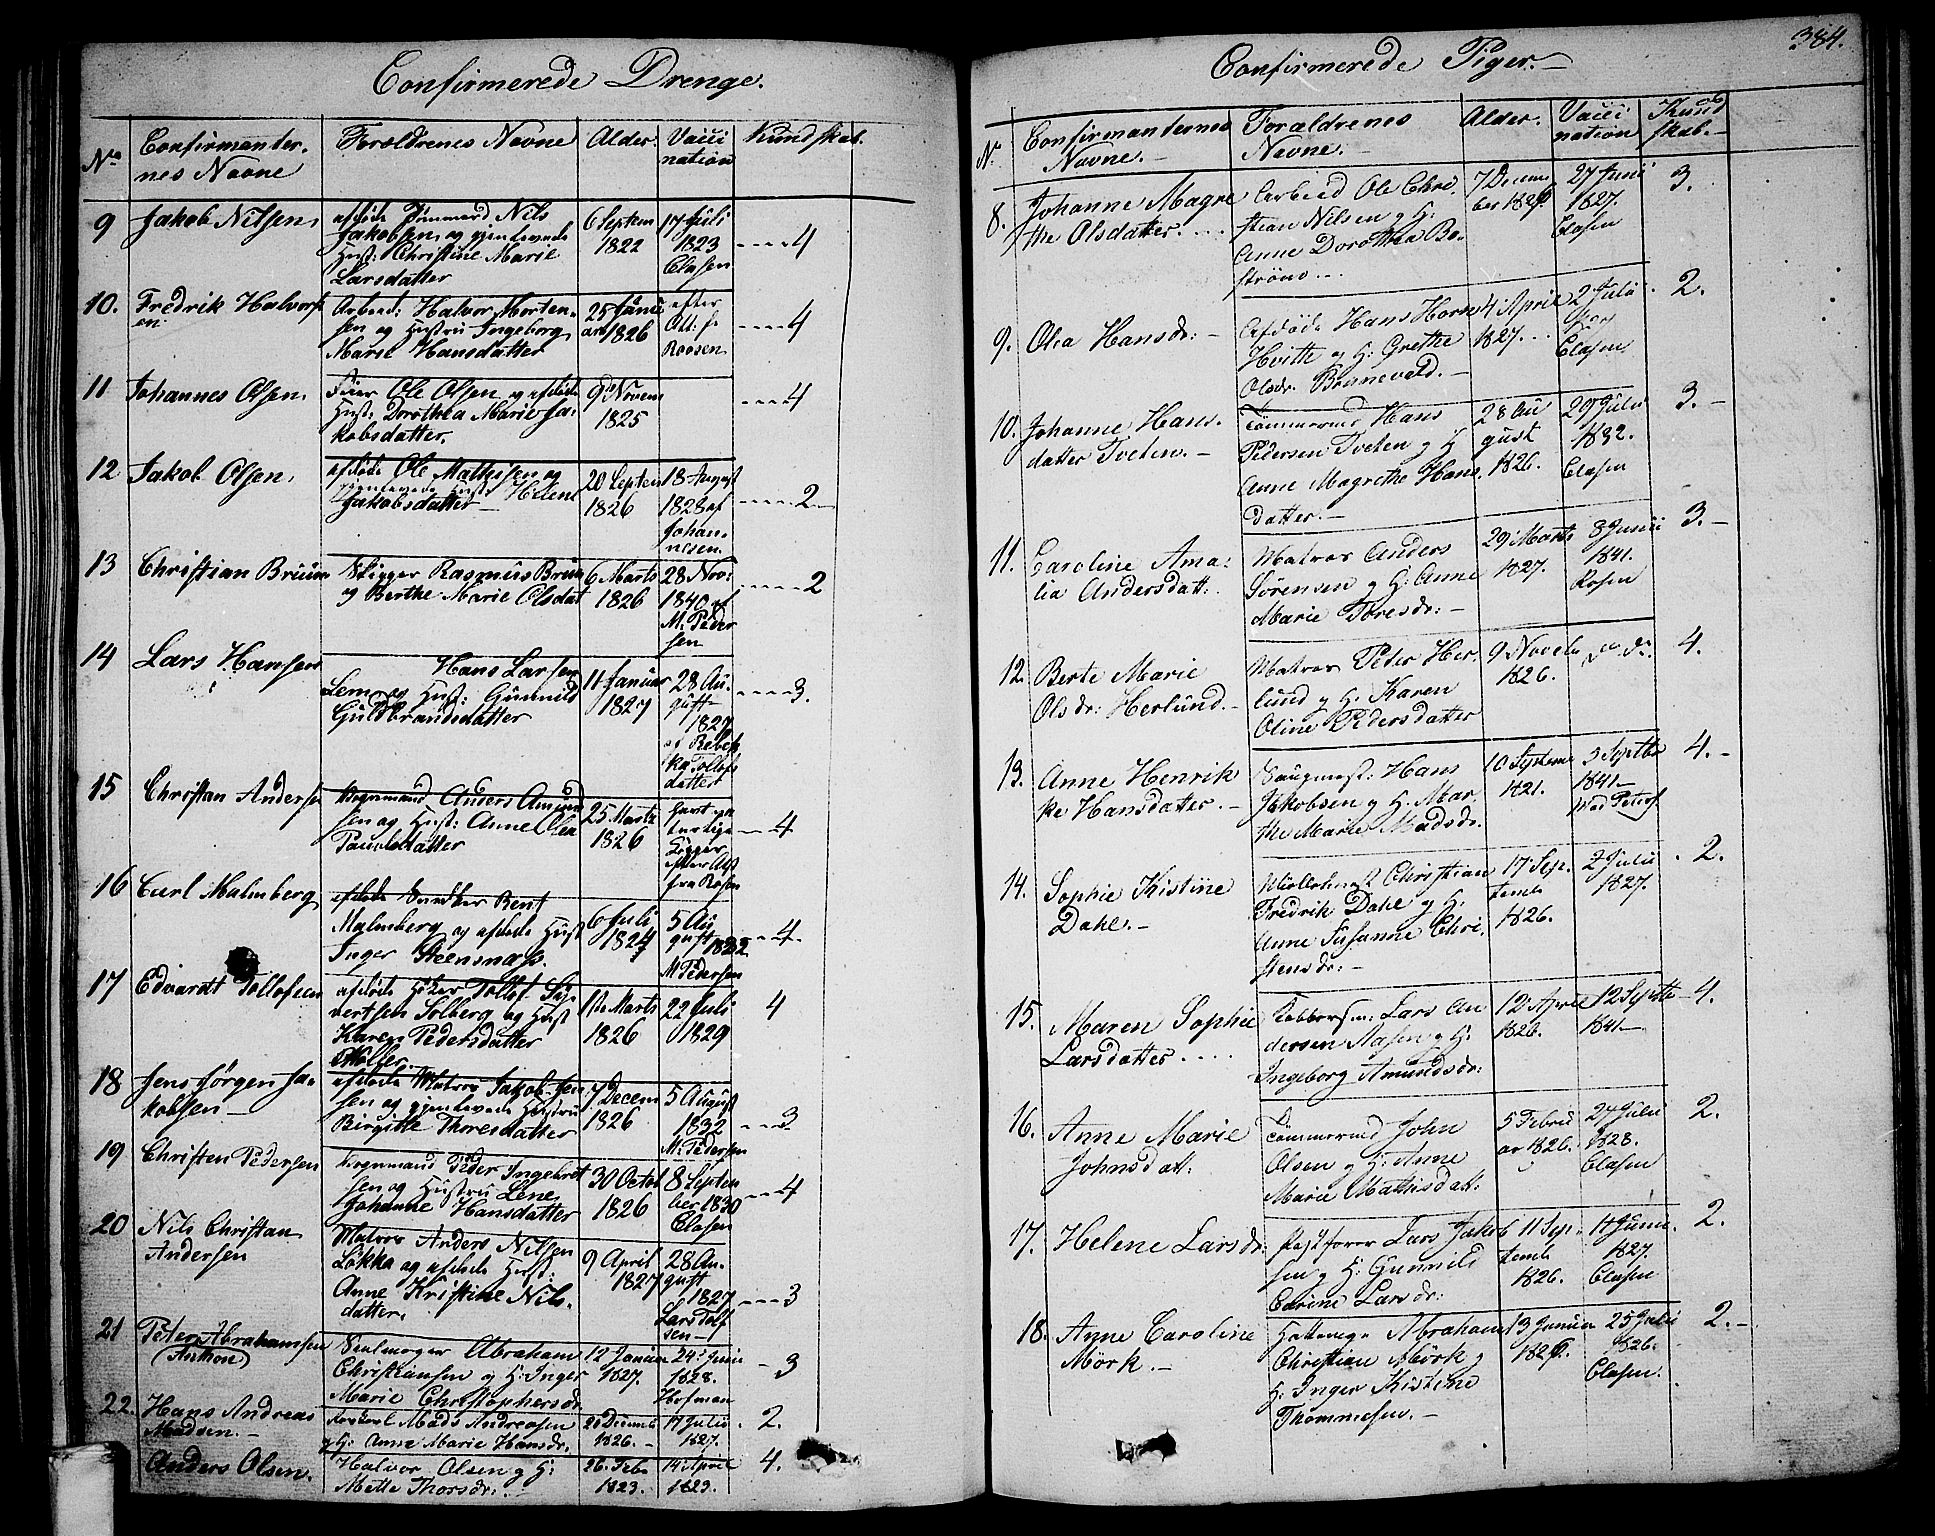 Confirmerede Drenge.
No
Confirmanter-
nes Navne
Forældrenes Navne
Alder.
Vacci
nation
Kundskab.
9
Jakob Nilsen,
afdøde Tømmermd Nils
Jakobsen og gjenlevende
Hust: Christine Marie
Larsdatter
6 Septem
1822
17 Juli
1823
Clasen
4
10.
Fredrik Halvors
en
Arbeid: Halvor Morten-
sen og Hustru Ingeborg
Marie Hansdatter
25 Janu
ar 1826
efter
Att: fr
Roosen
4
11
Johannes Olsen,
Ole Olsen og afdøde
Hust: Dorothea Marie Ja-
kobsdatter,
9 Novem
1825
4
12
Jakob Olsen,
afdøde Ole Mathisen og
gjenlevende Hust: Helene
Jakobsdatter
20 Septem
1826
18 August
1828 af
Johan-
nesen.
2
13
Christian Bruun
Skipper Rasmus Bruun
og Berthe Marie Olsdat
6 Marts
1826
28 Nov:
1840 af
M. Peder
sen
2
14
Lars Hansen
Hans Larsen
Lem og Hust: Gunnild
Guldbrandsdatter
11 Januar
1827
28 Au-
gust
1827
af Rebek
ka Tollofs
datter
3.
15
Christan Anders
Vognmand Anders Amund
sen og Hust: Anne Olea
Paulsdatter
25 Marts
1826
havt na
turlige
Kopper
efter Att
fra Rosen
4
16
Carl Malmberg
afdøde Snedker Bent
Malmberg og afdøde Hust
Inger Steensnæs.
6 Juli
1824
5 Au
gust 1832
M Pedersen
4.
17
Edvardt Tollofsen
afdøde Høker Tollof Si-
vertsen Solberg og Hust
Karen Pedersdatter
Møller
11te Marts
1826
22 Juli
1829
4
18
Jens Jørgen Ja-
kobsen
afdøde Matros Jakob Jen
sen og gjenlevende Hustru
Birgitte Thoresdatter
7 Decem
1826
5 August
1832
M. Pedersen
3
19
Christen Pedersen
Vognmand Peder Ingebret
sen og Hustru Lene
Johanne Hansdatter
30 Octob
1826
8 Septem
ber 1830
Clasen
4
20
Nils Christan
Andersen
Matros Anders Nilsen
Løkka og afdøde Hust:
Anne Kristine Nils-
datter.
9 April
1827
28 Au-
gust
1827
Lars Tolf
sen
3
21
Peter Abrahamsen
(Anthon)
Seilmager Abraham
Christiansen og H: Inger
Marie Christophersdr.
12 Januar
1827.
24 Juni
1828.
Hofman
3
22.
Hans Andreas
Madsen.
Mads Andreasen
og H: Anne Marie Hansdr.
20 Decemb
1826.
17 Julii
1827.
2.
Anders Olsen.
Halvor Olsen og H:
Mette Thorsdr:
26 Feb.
1823.
14 April
1823.
4.
Confirmerede Piger.
384.
No
Confirmanternes
Navne.
Forældrenes
Navne.
Alder.
Vacci
nation
Kund
skab.
8.
Johanne Magre
the Olsdatter.
Arbeid Ole Chri
stian Nilsen og H:
Anne Dorothea Bo-
strøm
7 Decem
ber 1826.
27 Juni
1827.
Clasen
3.
9.
Olea Hansdr:
Afdøde Hans Horn
Hvitte og H: Grethe
Olsdr. Bonneveld.
4 April
1827.
2 Julii
Clasen
2.
10.
Johanne Hans-
datter Tveten.
Tømmermd Hans
Pedersen Tveten og H
Anne Magrethe Hans
datter.
28 Au
gust
1826.
29 Julii
1832.
Clasen
3.
11.
Caroline Ama-
lia Andersdatt:
Matros Anders
Sørensen og H: Anne
Marie Toresdr:
29 Marts
1827.
8 Junii
1841.
Rosen
3.
12.
Berte Marie
Olsdr: Herlund.
Matros Peter Her-
lund og H: Karen
Oline Pedersdatter
9 Novemb
1826.
do do.
4.
13.
Anne Henrik
ke Hansdatter.
Saugmest: Hans
Jakobsen og H. Mar-
the Marie Madsdr.
10 Septemb
1821.
5 Septbr
1841.
Wed Peters
4.
14.
Sophie Kistine
Dahl.
Møllermest Christian
Fredrik Dahl og H.
Anne Susanne Chri
stensdr:
17 Sep-
temb
1826.
2 Julii
1827.
2.
15.
Maren Sophie
Larsdatter
Kobbersm: Lars An
dersen Aasen og H:
Ingeborg Amundsdr:
12 April
1826.
12 Septb
1841.
4.
16.
Anne Marie
Johnsdatt:
Tømmermd John
Olsen og H: Anne
Marie Mathisdatt:
5 Febru
ar 1826.
27 Julii
1828.
Clasen
2.
17.
Helene Larsdr:
Postfører Lars Jakob
sen og H: Gunnild
Carine Larsdr:
11 Sep-
temb
1826.
1827.
Clasen
2.
18.
Anne Caroline
Mörk.
Abraham
Christian Mörk og
H: Inger Kistine
Thommesen.
13 Januar
1826.
25 Julii
1826.
Clasen.
2.